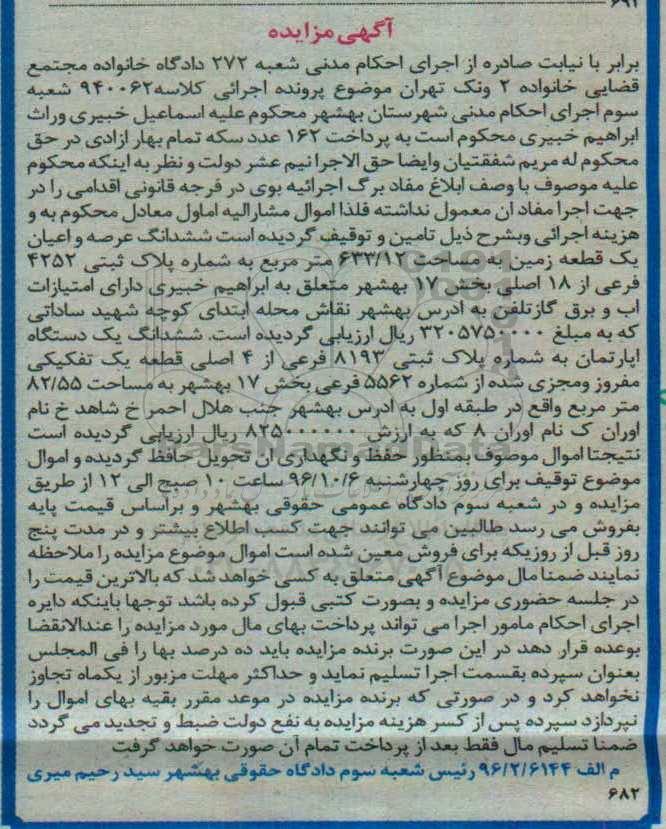 ۶۹۲
آگهی مزایده
برابر با نیابت صادره از اجرای احکام مدنی شعبه ۲۷۲ دادگاه خانواده مجتمع
قضایی خانواده ۲ ونک تهران موضوع پرونده اجرائی کلاسه۹۴۰۰۶۲ شعبه
سوم اجرای احکام مدنی شهرستان بهشهر محکوم علیه اسماعیل خبیری وراث
ابراهیم خبیری محکوم است به پرداخت ۱۶۲ عدد سکه تمام بهار ازادی در حق
محکوم له مریم شفقتیان وایضا حق الاجرا نیم عشر دولت و نظر به اینکه محکوم
علیه موصوف با وصف ابلاغ مفاد برگ اجرائیه بوی در فرجه قانونی اقدامی را در
جهت اجرا مفاد ان معمول نداشته فلذا اموال مشارالیه اماول معادل محکوم به و
هزینه اجرائی وبشرح ذیل تامین و توقیف گردیده است ششدانگ عرصه و اعیان
یک قطعه زمین به مساحت ۶۳۳/۱۲ متر مربع به شماره پلاک ثبتی ۴۲۵۲
فرعی از ۱۸ اصلی بخش ۱۷ بهشهر متعلق به ابراهیم خبیری دارای امتیازات
اب و برق گازتلفن به ادرس بهشهر نقاش محله ابتدای کوچه شهید ساداتی
که به مبلغ ۳۲۰۵۷۵۰۰۰۰ ریال ارزیابی گردیده است. ششدانگ یک دستگاه
اپارتمان به شماره پلاک ثبتی ۸۱۹۳ فرعی از ۴ اصلی قطعه یک تفکیکی
مفروز ومجزی شده از شماره ۵۵۶۲ فرعی بخش ۱۷ بهشهر به مساحت ۸۲/۵۵
متر مربع واقع در طبقه اول به ادرس بهشهر جنب هلال احمر خ شاهد خ نام
اوران ک نام اوران ۸ که به ارزش ۸۲۵۰۰۰۰۰۰ ریال ارزیابی گردیده است
نتیجتا اموال موصوف بمنظور حفظ و نگهداری ان تحویل حافظ گردیده و اموال
موضوع توقیف برای روز چهارشنبه ۹۶/۱۰/۶ ساعت ۱۰ صبح الی ۱۲ از طریق
مزایده و در شعبه سوم دادگاه عمومی حقوقی بهشهر و براساس قیمت پایه
بفروش می رسد طالبین می توانند جهت کسب اطلاع بیشتر و در مدت پنج
روز قبل از روزیکه برای فروش معین شده است اموال موضوع مزایده را ملاحظه
نمایند ضمنا مال موضوع آگهی متعلق به کسی خواهد شد که بالاترین قیمت را
در جلسه حضوری مزایده و بصورت کتبی قبول کرده باشد توجها باینکه دایره
اجرای احکام مامور اجرا می تواند پرداخت بهای مال مورد مزایده را عندالانقضا
بوعده قرار دهد در این صورت برنده مزایده باید ده درصد بها را فی المجلس
بعنوان سپرده بقسمت اجرا تسلیم نماید و حداکثر مهلت مزبور از یکماه تجاوز
نخواهد کرد و در صورتی که برنده مزایده در موعد مقرر بقیه بهای اموال را
نپردازد سپرده پس از کسر هزینه مزایده به نفع دولت ضبط و تجدید می گردد
ضمنا تسلیم مال فقط بعد از پرداخت تمام آن صورت خواهد گرفت
م الف ۹۶/۲/۶۱۴۴ رئیس شعبه سوم دادگاه حقوقی بهشهر سید رحیم میری
۶۸۲